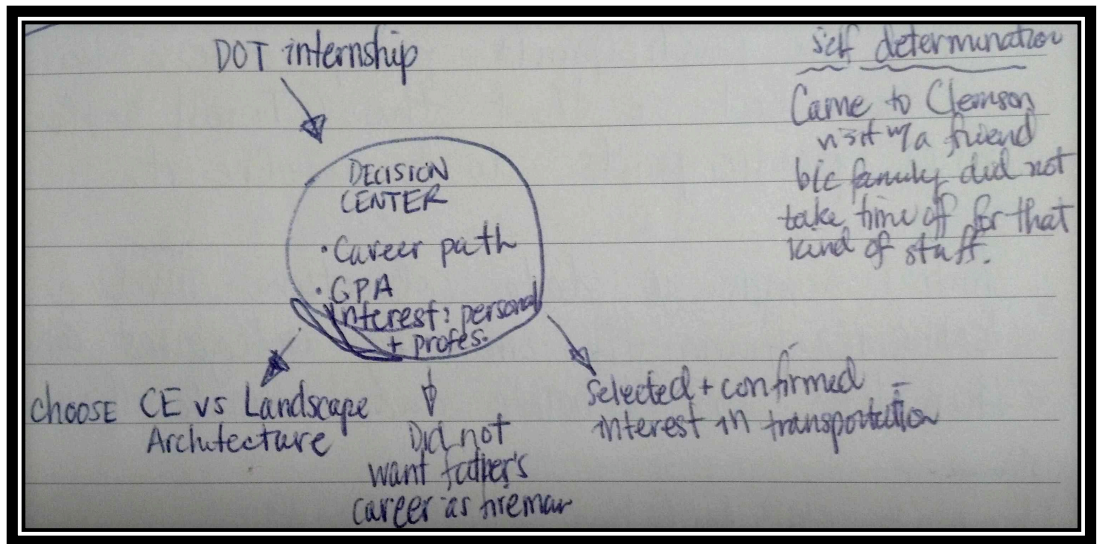 DOT internship
DECISION
CENTER
• Career path
• GPA
Interest: personal
+ profes.
choose CE vs Landscape
Architecture
Did not
want father's
career as fireman
Selected + confirmed
interest in transportation
self determination
Came to Clemson
visit w/a friend
b/c family did not
take time off for that
kind of stuff.